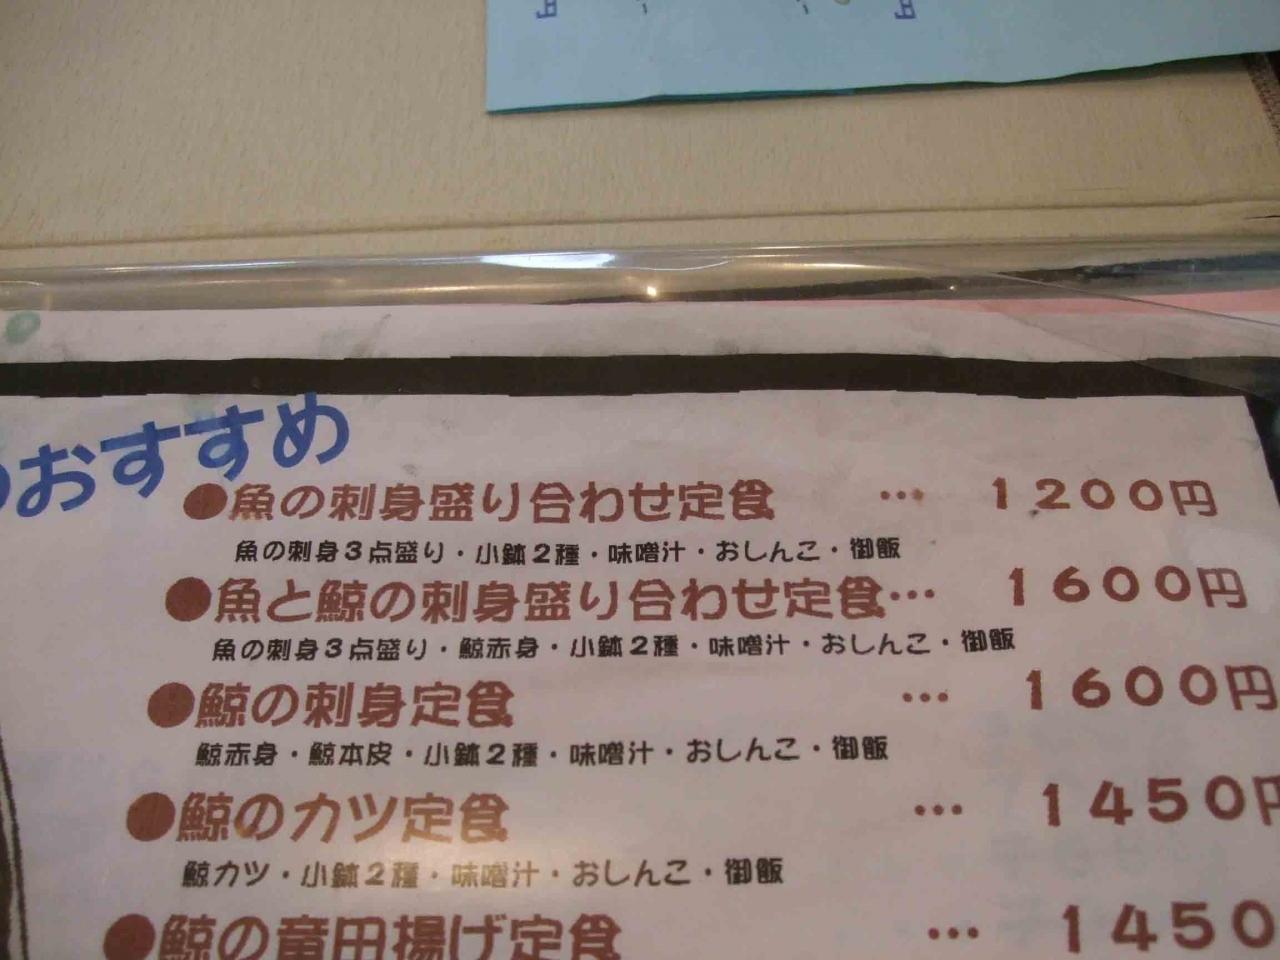 円 円
おすすめ
●魚の刺身盛り合わせ定食 … 1200円
魚の刺身3点盛り・小鉢2種・味噌汁・おしんこ・御飯
●魚と鯨の刺身盛り合わせ定食… 1600円
魚の刺身3点盛り・鯨赤身・小鉢2種・味噌汁・おしんこ・御飯
●鯨の刺身定食 … 1600円
鯨赤身・鯨本皮・小鉢2種・味噌汁・おしんこ・御飯
●鯨のカツ定食 … 1450円
鯨カツ・小鉢2種・味噌汁・おしんこ・御飯
●鯨の竜田揚げ定食 … 1450